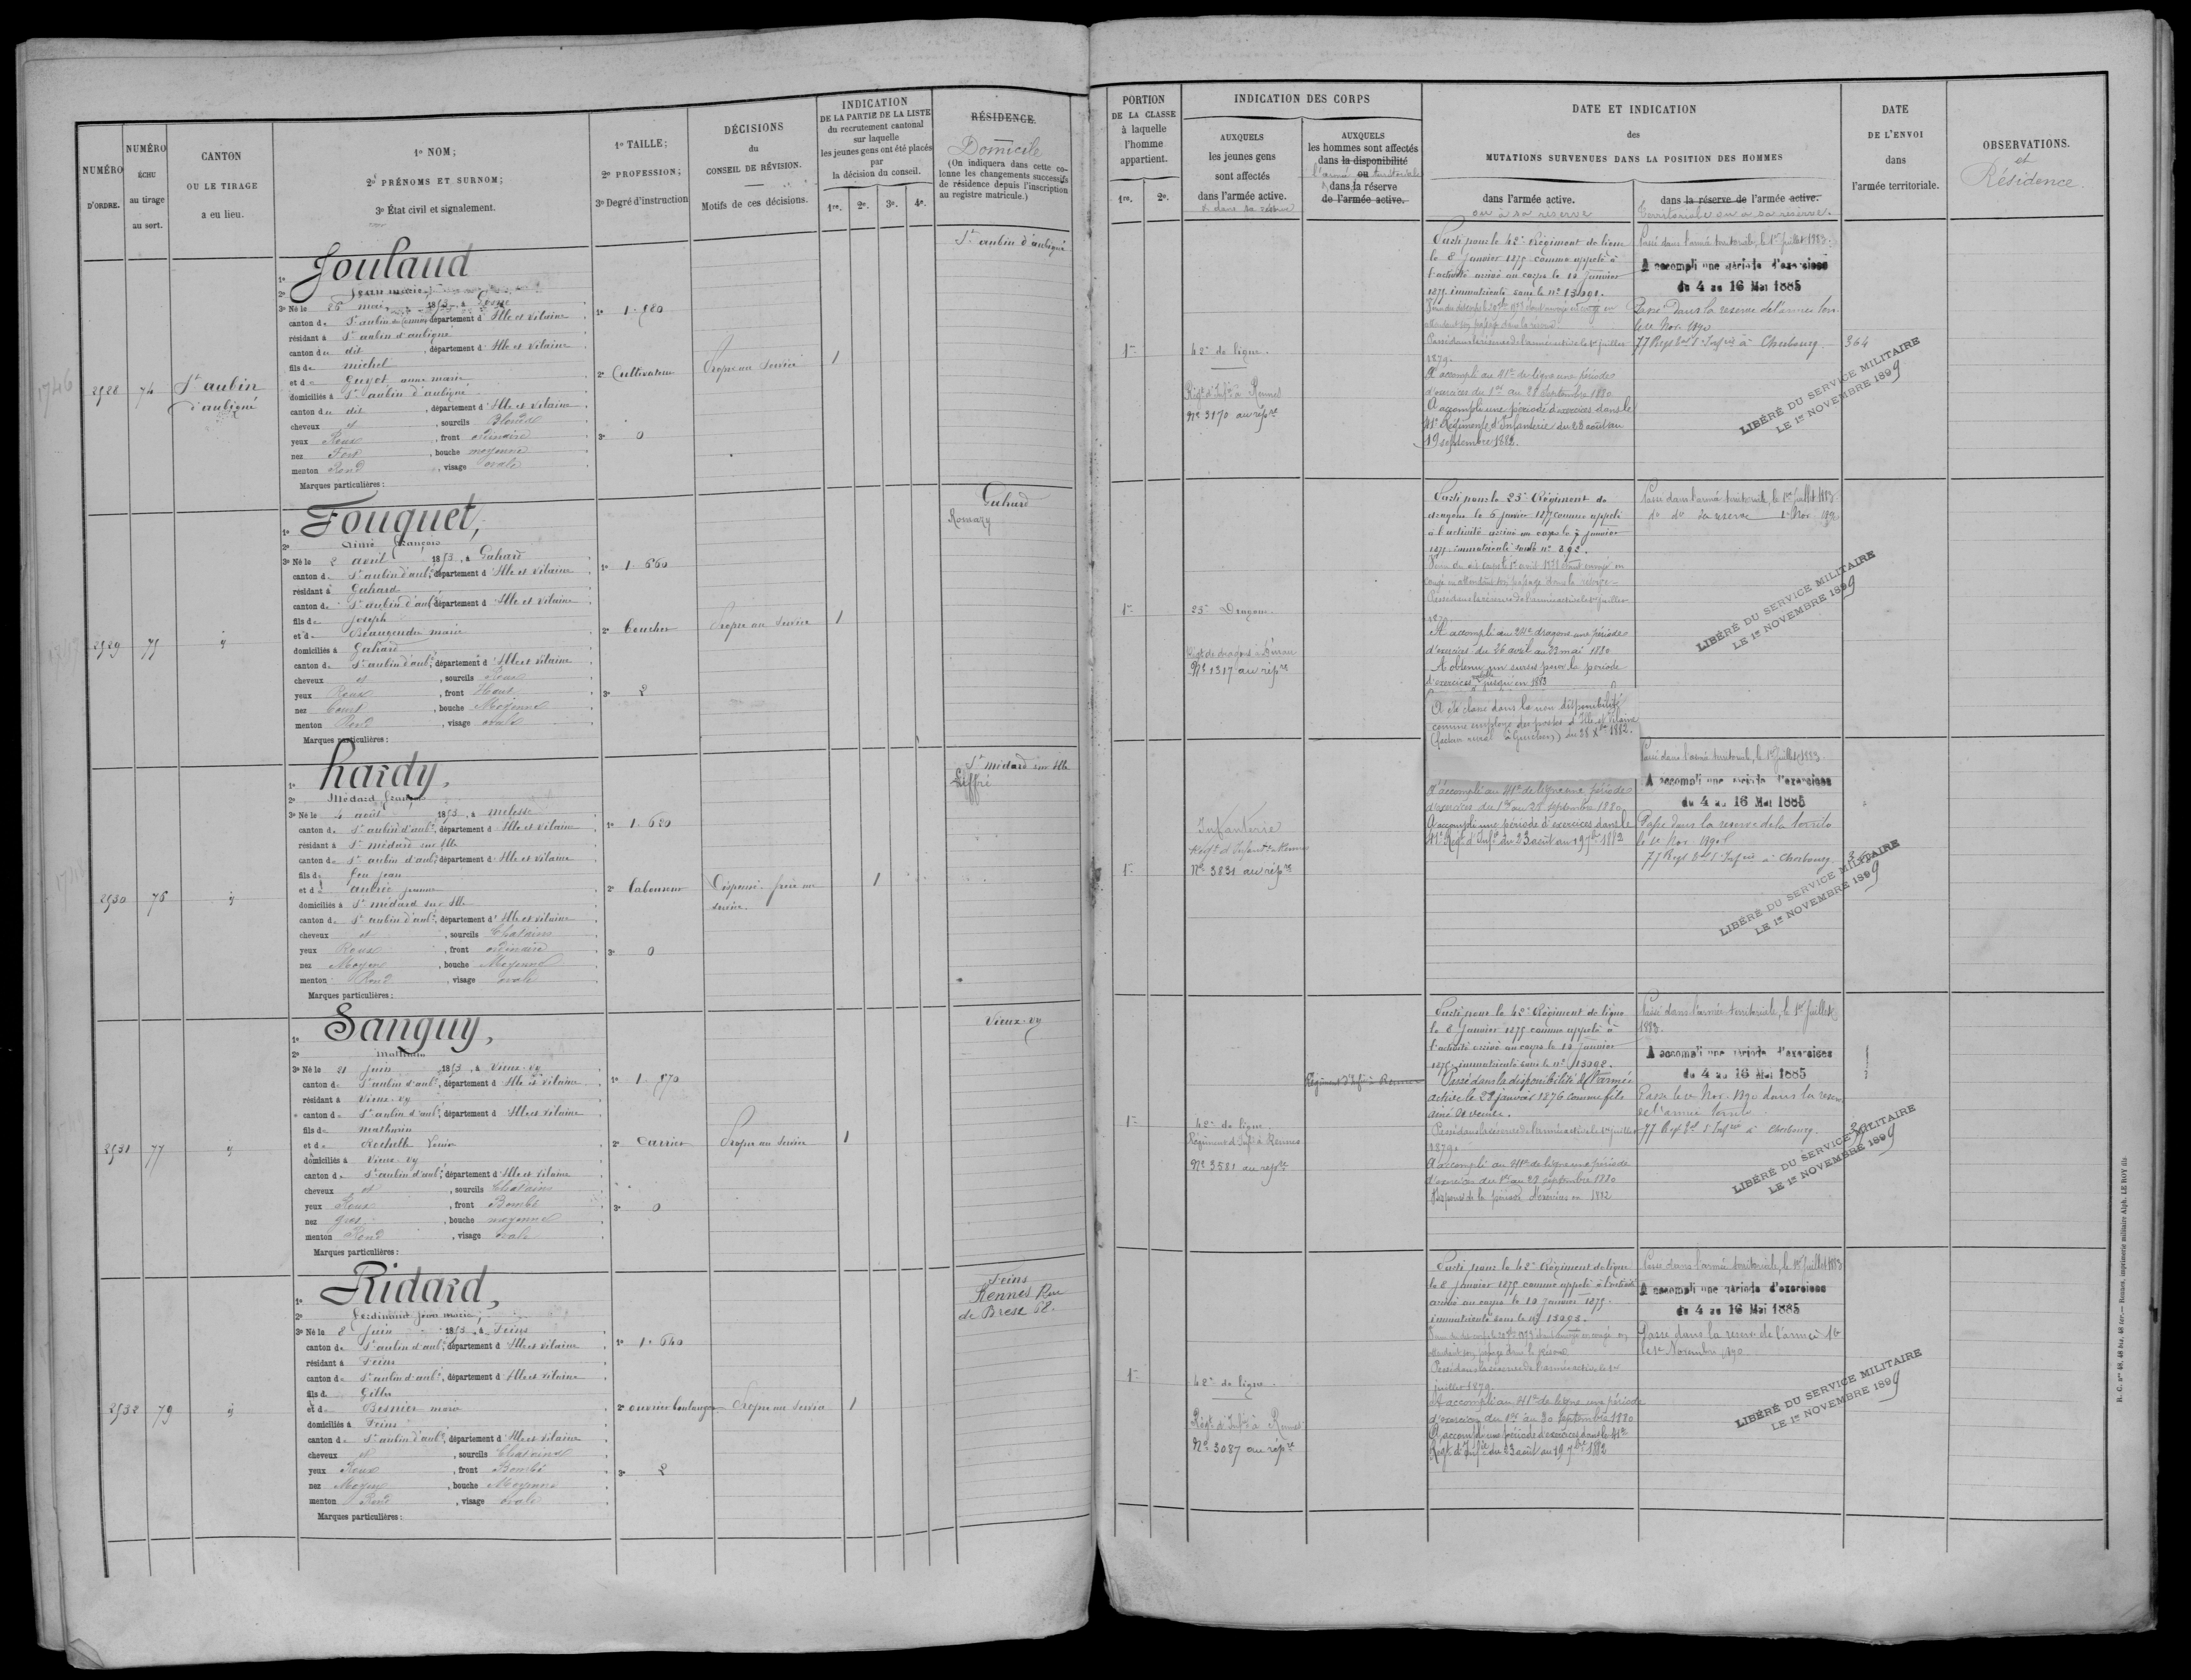 NUMÉRO
D'ORDRE.
NUMÉRO
ÉCHU
au tirage
au sort.
CANTON
OU LE TIRAGE
a eu lieu.
1º NOM;
2º PRÉNOMS ET SURNOM;
3º État civil et signalement.
1º TAILLE;
2º PROFESSION;
3º Degré d'instruction
DÉCISIONS
du
CONSEIL DE RÉVISION.
Motifs de ces décisions.
INDICATION
DE LA PARTIE DE LA LISTE
du recrutement cantonal
sur laquelle
les jeunes gens ont été placés
par
la décision du conseil.
1re. 2e. 3e. 4e.
RÉSIDENCE.
Domicile
(On indiquera dans cette co-
lonne les changements successifs
de résidence depuis l'inscription
au registre matricule.)
2928
74
St aubin
d'aubigné
1º Joulaud
2º Jean marie
3º Né le 26 mai 1853, à
canton de St aubin département d'Ille et Vilaine
résidant à St aubin d'aubigné
canton du dit, département d'Ille et Vilaine
fils de michel
et de Guyot anne marie
domiciliés à St aubin d'aubigné
canton du dit, département d'Ille et Vilaine
cheveux et, sourcils Blonds
yeux Roux, front ordinaire
nez Fort, bouche moyenne
menton Rond, visage ovale
Marques particulières:
1º 1.580
2º Cultivateur
3º 0
Propre au service
1
St aubin d'aubigné
2929
75
1º Fouquet,
2º Aimé François
3º Né le 2 avril 1853, à Gahard
canton de St aubin d'aub., département d'Ille et Vilaine
résidant à Gahard
canton de St aubin d'aub., département d'Ille et Vilaine
fils de Joseph
et de Beaugendre marie
domiciliés à Gahard
canton de St aubin d'aub., département d'Ille et Vilaine
cheveux et, sourcils Roux
yeux Roux, front Haut
nez Court, bouche Moyenne
menton Rond, visage ovale
Marques particulières:
1º 1.660
2º Boucher
3º 2
Propre au service
1
Gahard
Romazy
2930
76
1º hardy,
2º Médard François
3º Né le 4 août 1853, à melesse
canton de St aubin d'aub., département d'Ille et Vilaine
résidant à St médard sur Ille
canton de St aubin d'aub., département d'Ille et Vilaine
fils de feu jean
et de aubrée jeanne
domiciliés à St médard sur Ille
canton de St aubin d'aub., département d'Ille et Vilaine
cheveux et, sourcils Chatains
yeux Roux, front ordinaire
nez Moyen, bouche Moyenne
menton Rond, visage ovale
Marques particulières:
1º 1.620
2º Laboureur
3º 0
Dispensé frère au
service.
1
St médard sur Ille
Liffré
2931
77
1º Sanguy,
2º Mathurin
3º Né le 21 juin 1853, à Vieux-vy
canton de St aubin d'aub., département d'Ille et Vilaine
résidant à Vieux-vy
canton de St aubin d'aub., département d'Ille et Vilaine
fils de mathurin
et de Rochelle
domiciliés à Vieux-vy
canton de St aubin d'aub., département d'Ille et Vilaine
cheveux et, sourcils Chatains
yeux Roux, front Bombé
nez gros, bouche moyenne
menton Rond, visage ovale
Marques particulières:
1º 1.570
2º Carrier
3º 0
Propre au service
1
Vieux-vy
2932
79
1º Ridard,
2º Ferdinand jean marie
3º Né le 8 juin 1853, à Feins
canton de St aubin d'aub., département d'Ille et Vilaine
résidant à Feins
canton de St aubin d'aub., département d'Ille et Vilaine
fils de Gilles
et de Besnier marie
domiciliés à Feins
canton de St aubin d'aub., département d'Ille et Vilaine
cheveux et, sourcils Chatains
yeux Roux, front Bombé
nez Moyen, bouche Moyenne
menton Rond, visage ovale
Marques particulières:
1º 1.640
2º ouvrier boulanger
3º 2
Propre au service
1
Feins
Rennes Rue
de Brest 62.
PORTION
DE LA CLASSE
à laquelle
l'homme
appartient.
1re. 2e.
INDICATION DES CORPS
AUXQUELS
les jeunes gens
sont affectés
dans l'armée active.
& dans sa réserve
AUXQUELS
les hommes sont affectés
dans la disponibilité
l'armée ou territoriale
dans la réserve
de l'armée active.
DATE ET INDICATION
des
MUTATIONS SURVENUES DANS LA POSITION DES HOMMES
dans l'armée active.
ou à sa réserve
dans la réserve de l'armée active.
territoriale ou à sa réserve.
DATE
DE L'ENVOI
dans
l'armée territoriale.
OBSERVATIONS.
et
Résidence.
1re
42e de ligne.
Régt d'Infie à Rennes
Nº 3170 au répre
Parti pour le 42e Régiment de ligne
le 8 Janvier 1875 comme appelé à
l'activité arrivé au corps le 10 Janvier
1875 immatriculé sous le nº 13091.
Passé dans la réserve de l'armée active le 1er juillet
1879.
A accompli au 41e de ligne une période
d'exercices du 1er au 28 Septembre 1880
A accompli une période d'exercices dans le
41e Régiment d'Infanterie du 23 août au
19 septembre 1882.
Passé dans l'armée territoriale, le 1er juillet 1883.
A accompli une période d'exercices
du 4 au 16 Mai 1885
Passé Dans la réserve de l'armée terr.
le 1er Nov. 1890
77 Regt tal d'Infrie à Cherbourg
364
LIBÉRÉ DU SERVICE MILITAIRE
LE 1er NOVEMBRE 1899
1re
25e Dragons.
Régt de dragons à Dinan
Nº 1317 au répre
Parti pour le 25e Régiment de
dragons le 6 janvier 1875 comme appelé
à l'activité arrivé au corps le 7 janvier
1875 immatriculé sous le nº 892.
Passé dans la réserve de l'armée active le 1er juillet
1879
A accompli au 24e dragons une période
d'exercices du 26 avril au 23 mai 1880
A obtenu un sursis pour la période
d'exercices jusqu'en 1883
A été classé dans la non disponibilité
comme employé des postes d'Ille et Vilaine
(facteur rural à Guichen) du 28 Xbre 1882.
Passé dans l'armée territoriale, le 1er juillet 1883
do do la réserve 1er Nov 1890
LIBÉRÉ DU SERVICE MILITAIRE
LE 1er NOVEMBRE 1899
1re
Infanterie
Régt d'Infanterie Rennes
Nº 3831 au répre
A accompli au 41e de ligne une période
d'exercices du 1er au 28 septembre 1880
A accompli une période d'exercices dans le
41e Régt d'Infie du 23 août au 19 7bre 1882
Passé dans l'armée territoriale, le 1er Juillet 1883.
A accompli une période d'exercices
du 4 au 16 Mai 1885
Passé dans la réserve de la territo
le 1er Nov. 1890
77 Regt tal d'Infrie à Cherbourg
LIBÉRÉ DU SERVICE MILITAIRE
LE 1er NOVEMBRE 1899
1re
42e de ligne
Régiment d'Infie à Rennes
Nº 3581 au répre
Régiment d'Infie à Rennes
Parti pour le 42e Régiment de ligne
le 8 Janvier 1875 comme appelé à
l'activité arrivé au corps le 10 Janvier
1875 immatriculé sous le nº 13092.
Passé dans la disponibilité de l'armée
active le 29 janvier 1876 comme fils
ainé de veuve.
Passé dans la réserve de l'armée active le 1er juillet
1879.
A accompli au 41e de ligne une période
d'exercices du 1er au 28 septembre 1880
Dispensé de la période d'exercices en 1882
Passé dans l'armée territoriale, le 1er Juillet
1883.
A accompli une période d'exercices
du 4 au 16 Mai 1885
Passé le 1er Nov. 1890 dans la réserve
de l'armée terrle
77 Regt tal d'Infrie à Cherbourg.
LIBÉRÉ DU SERVICE MILITAIRE
LE 1er NOVEMBRE 1899
1re
42e de ligne.
Régt d'Infie à Rennes
Nº 3087 au répre
Parti pour le 42e Régiment de ligne
le 8 janvier 1875 comme appelé à l'activité
arrivé au corps le 10 janvier 1875.
immatriculé sous le nº 13093.
Passé dans la réserve de l'armée active le 1er
juillet 1879.
A accompli au 41e de ligne une période
d'exercices du 1er au 30 septembre 1880
A accompli une période d'exercices dans le 41e
Régt d'Infie du 23 août au 19 7bre 1882
Passé dans l'armée territoriale, le 1er Juillet 1883
A accompli une période d'exercices
du 4 au 16 Mai 1885
Passé dans la réserve de l'armée te
le 1er Novembre 1890
LIBÉRÉ DU SERVICE MILITAIRE
LE 1er NOVEMBRE 1899
R. C. nos 48, 48 bis, 48 ter.— Rennes, imprimerie militaire Alph. LE ROY fils